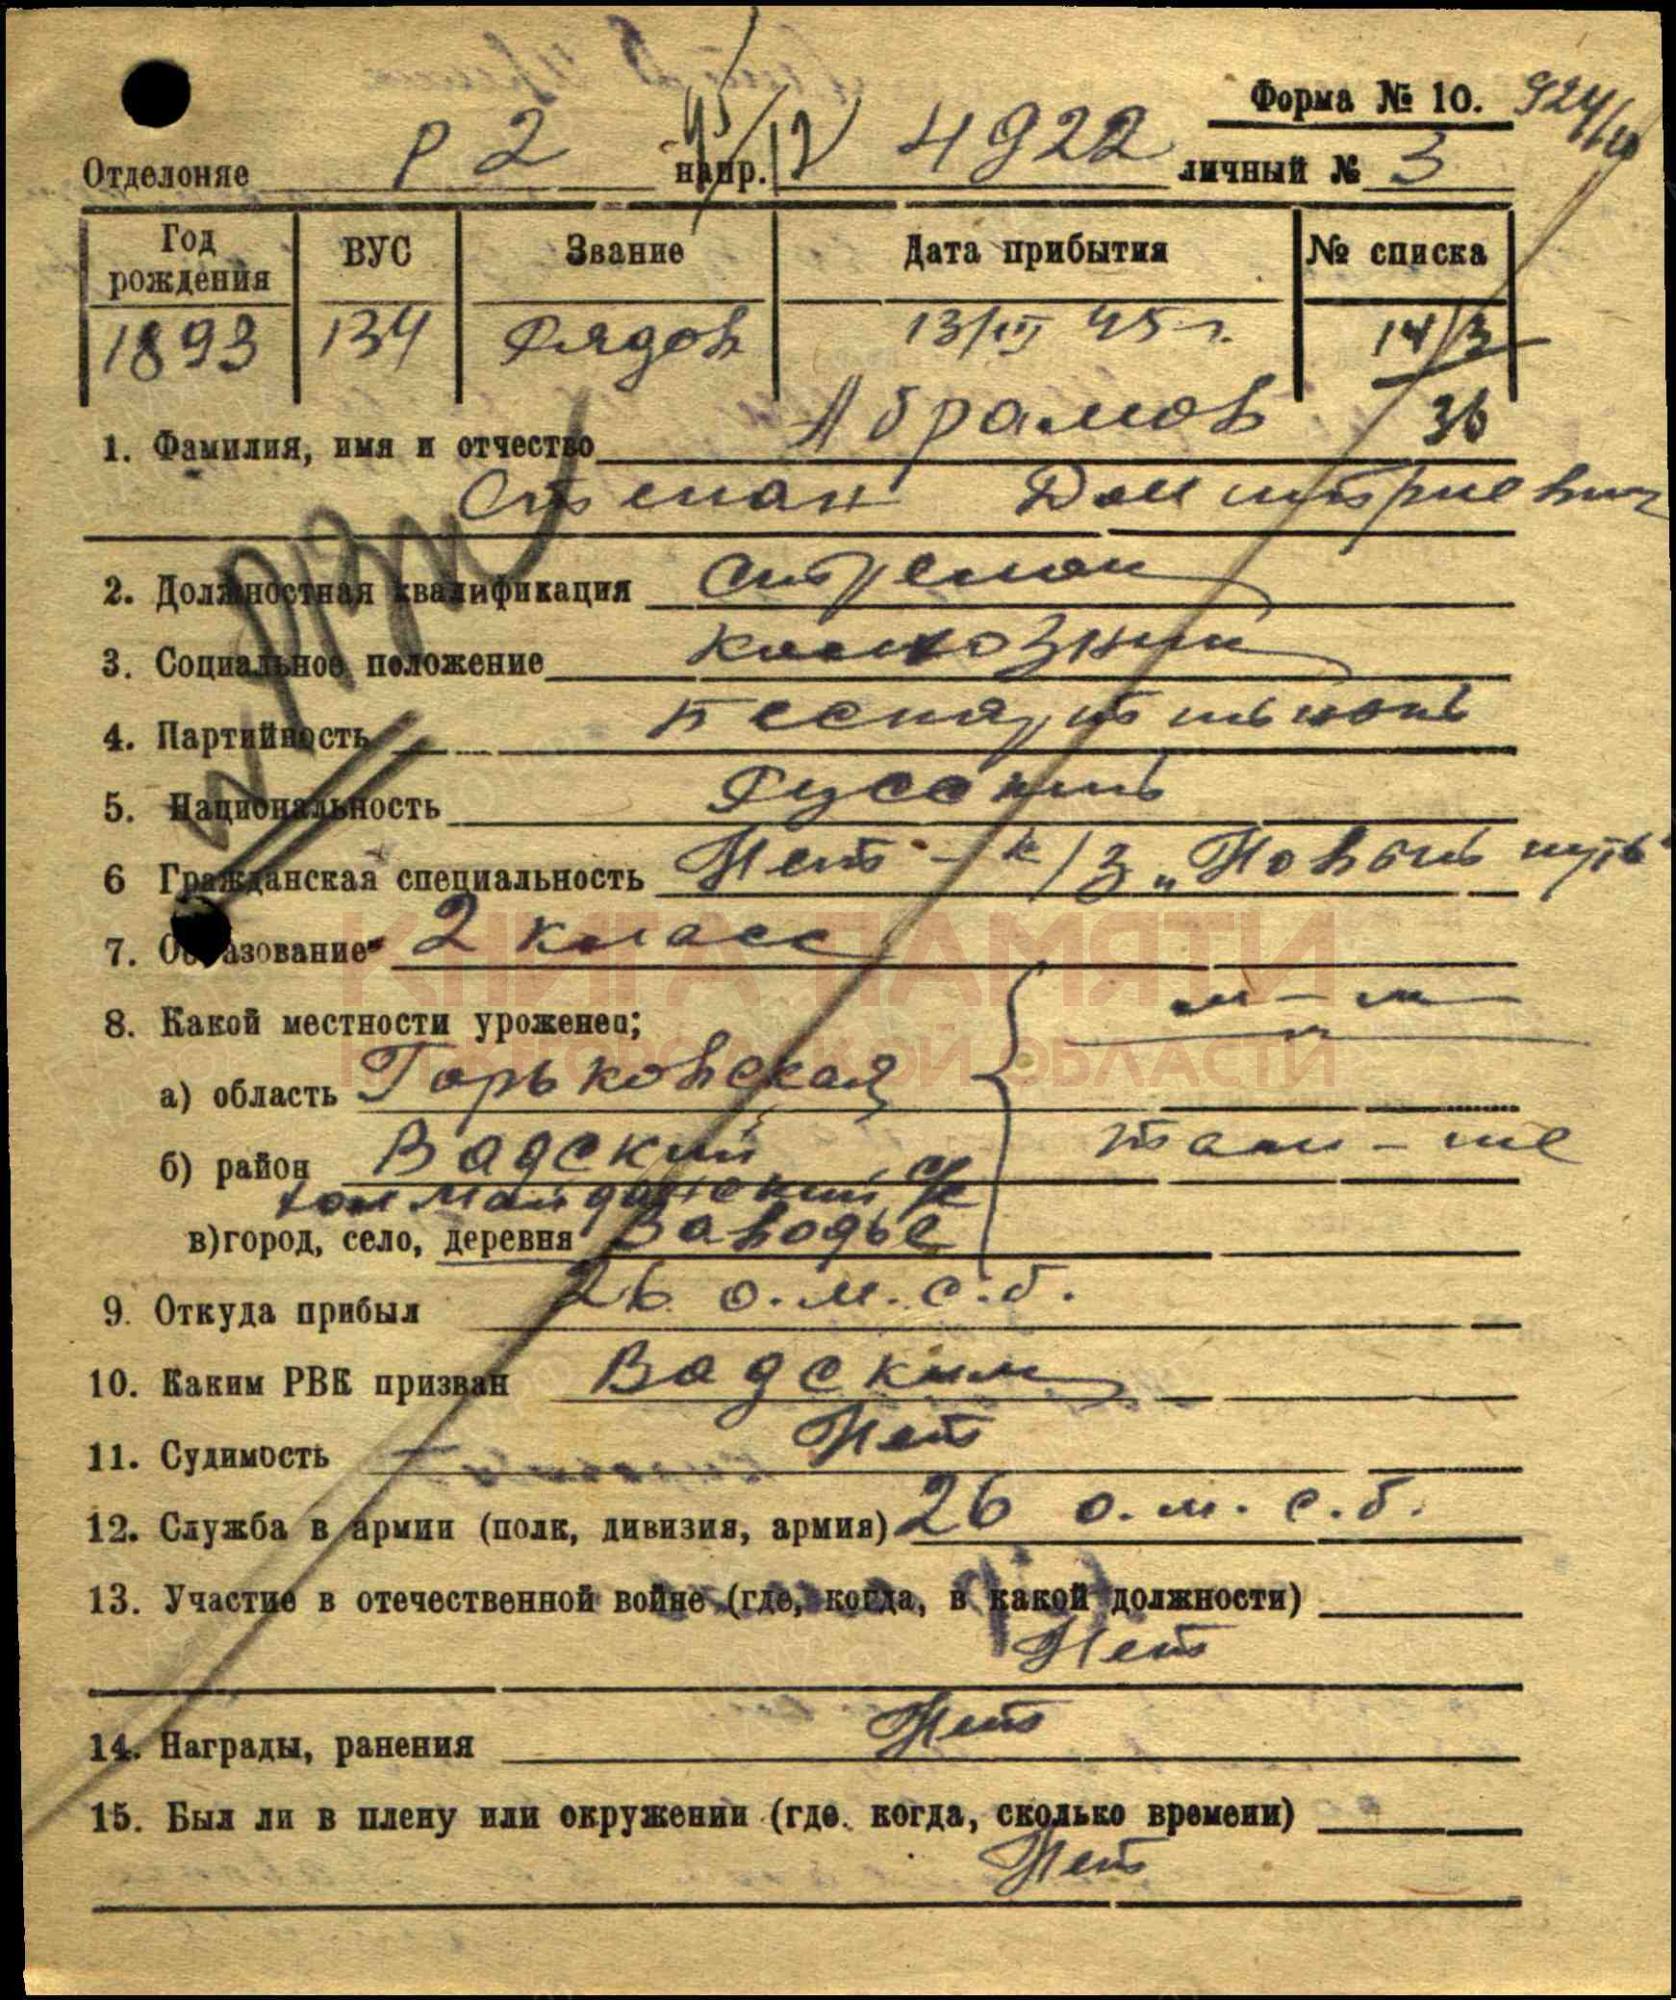 Форма № 10. 924/10
Отделоняе Р 2 напр. 4922 личный № 3
Год рождения ВУС Звание Дата прибытия № списка
1893 134 Рядов 13/III 45 г. 14/3
36
1. Фамилия, имя и отчество Абрамов
Степан Дмитриевич
2. Должностная квалификация Стрелок
3. Социальное положение Колхозник
4. Партийность Беспартийный
5. Национальность Русский
6 Гражданская специальность Нет - к/з „Новый путь"
7. Образование 2 класс
КНИГА ПАМЯТИ
НИЖЕГОРОДСКОЙ ОБЛАСТИ
8. Какой местности уроженец;
а) область Горьковская
б) район Вадский там-же
Майданский с/с
в)город, село, деревня Заводье
9. Откуда прибыл 26 о.м.с.б.
10. Каким РВК призван Вадским
11. Судимость — Нет
12. Служба в армии (полк, дивизия, армия) 26 о.м.с.б.
13. Участие в отечественной войне (где, когда, в какой должности)
Нет
14. Награды, ранения Нет
15. Был ли в плену или окружении (где. когда, сколько времени)
Нет